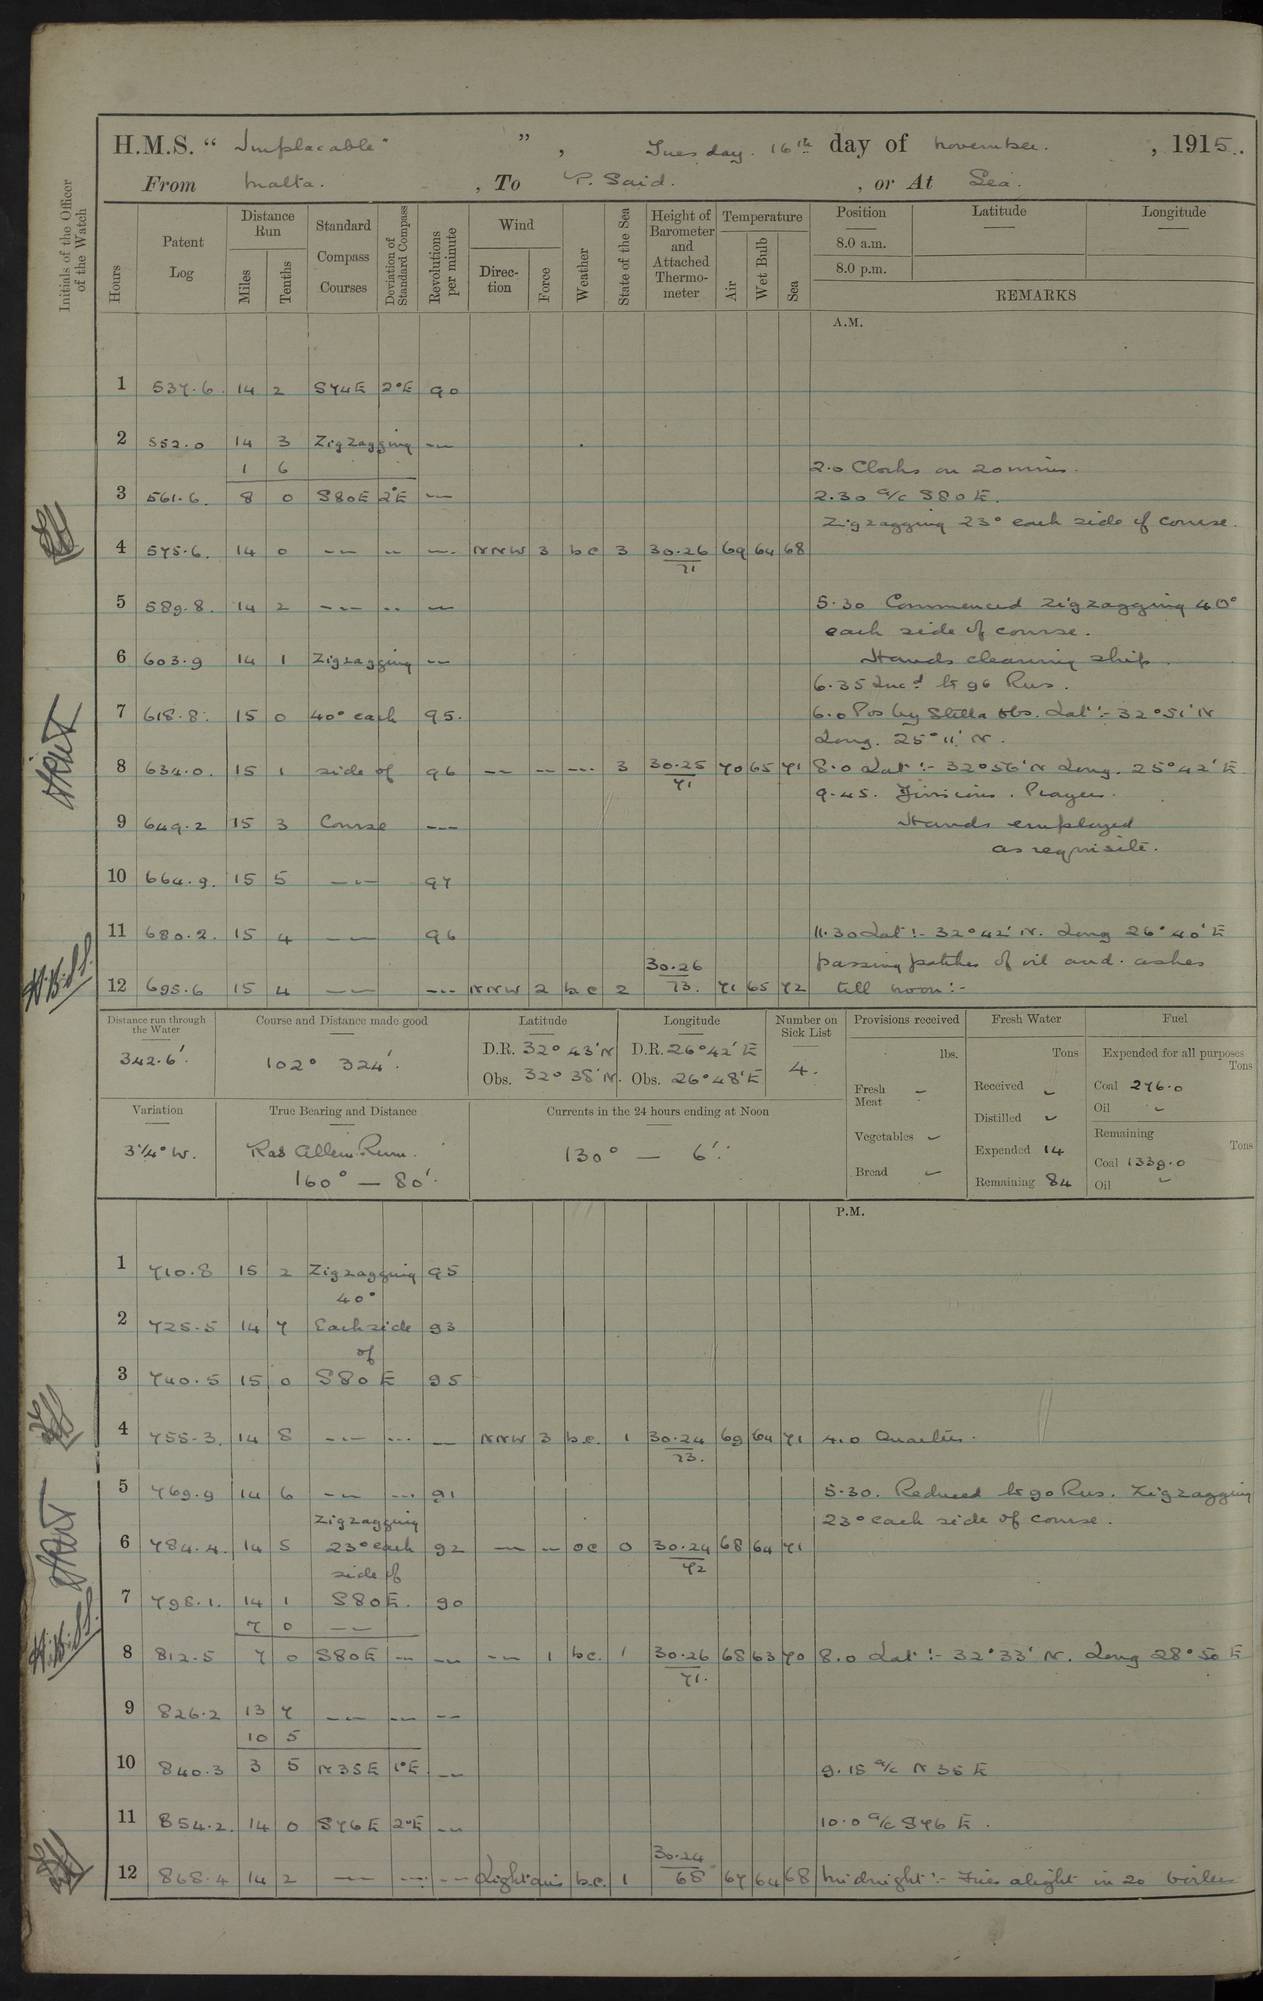 H.M.S. “ Implacable ” , Tuesday 16th day of November. , 1915.
From Malta. , To P. Said. , or At Sea.
Initials of the Officer of the Watch
Hours Patent Log Distance Run Miles Tenths Standard Compass Courses Deviation of Standard Compass Revolutions per minute Wind Direction Force Weather State of the Sea Height of Barometer and Attached Thermometer Temperature Air Wet Bulb Sea Position Latitude Longitude
8.0 a.m.
8.0 p.m.
REMARKS
A.M.
1 537.6 14 2 S74E 2°E 90
2 552.0 14 3 Zigzagging —
1 6 2.0 Clocks on 20 mins.
3 561.6 8 0 S80E 2°E — 2.30 a/c S80E.
Zigzagging 23° each side of course.
4 575.6 14 0 — — — NNW 3 bc 3 30.26 71 69 64 68
5 589.8 14 2 — — — 5.30 Commenced zigzagging 40°
each side of course.
6 603.9 14 1 Zigzagging — Hands cleaning ship.
6.35 Incd to 96 Revs.
7 618.8 15 0 40° each 95. 6.0 Pos by Stella obs. Lat :- 32°51'N
Long. 25°11' N.
8 634.0 15 1 side of 96 — — — 3 30.25 71 70 65 71 8.0 Lat :- 32°56'N Long. 25°42'E
9.45. Divisions. Prayers.
9 649.2 15 3 Course — Hands employed
as requisite.
10 664.9 15 5 — 97
11 680.2 15 4 — 96 11.30 Lat :- 32°42' N. Long 26°40'E
passing patches of oil and ashes
12 695.6 15 4 — — NNW 2 bc 2 30.26 73. 71 65 72 till noon :-
Distance run through the Water Course and Distance made good Latitude Longitude Number on Sick List Provisions received Fresh Water Fuel
342.6'. 102° 324'. D.R. 32° 43'N D.R. 26°42'E 4. lbs. Tons Expended for all purposes Tons
Obs. 32° 38'N. Obs. 26°48'E Fresh Meat — Received — Coal 276.0
Distilled — Oil —
Variation True Bearing and Distance Currents in the 24 hours ending at Noon Vegetables — Expended 14 Remaining Tons
3¼° W. Ras Allem Rum. 130° — 6'. Bread — Remaining 84 Coal 1339.0
160° — 80'. Oil —
P.M.
1 710.8 15 2 Zigzagging 95
40°
2 725.5 14 7 Each side 93
of
3 740.5 15 0 S80E 95
4 755.3. 14 8 — — — NNW 3 b.c. 1 30.24 73. 69 64 71 4.0 Quarters.
5 769.9 14 6 — — 91 5.30. Reduced to 90 Revs. Zigzagging
Zigzagging 23° each side of course.
6 784.4. 14 5 23° each 92 — — oc 0 30.24 72 68 64 71
side of
7 798.1. 14 1 S80E. 90
7 0 —
8 812.5 7 0 S80E — — — 1 bc. 1 30.26 71. 68 63 70 8.0 Lat :- 32°33' N. Long 28°50 E
9 826.2 13 7 — — —
10 5
10 840.3 3 5 N35E 1°E — 9.15 a/c N 35 E
11 854.2. 14 0 S76E 2°E — 10.0 a/c S76 E.
12 868.4 14 2 — — — Light airs b.c. 1 30.24 68 67 64 68 Midnight :- Fires alight in 20 boilers